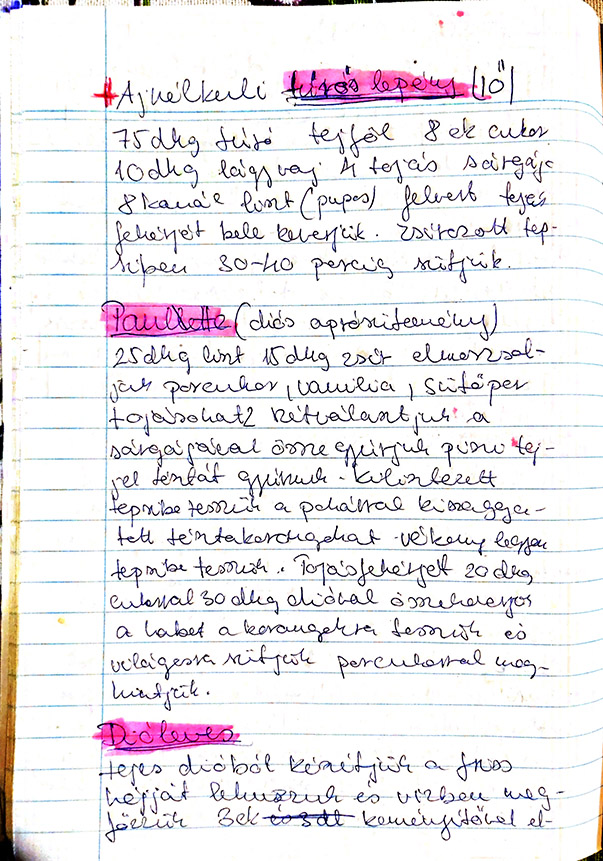 +Ajnélkuli túrós lepény (10Ö)
75dkg túró tejföl 8 ek cukor
10dkg lágy vaj 4 tojás sárgája
8 kanál liszt (pupos) felvert tojás
fehérjét bele keverjük. Zsirozott tep-
siben 30-40 percig sütjük.
Paullette (diós aprósütemény)
25dkg liszt 15dkg zsir elmorzsol-
juk porcukor, vanilia, sütőpor
tojásokat 2 kétválasztjuk a
sárgájával össze gyúrjuk pici tej-
jel tésztát gyúrunk. Kilisztezett
tepsibe tesszük a pohárral kiszagga-
tott tésztakorongokat vékony legyen
tepsibe tesszük. Tojásfehérjét 20 dkg
cukorral 30 dkg dióval összekeverjük
a habot a korongokra tesszük és
világosra sütjük porcukorral meg-
hintjük.
Dióleves
tejes dióból készítjük a friss
héját lehúzzuk és vízben meg-
főzzük 3ek keményítővel el-